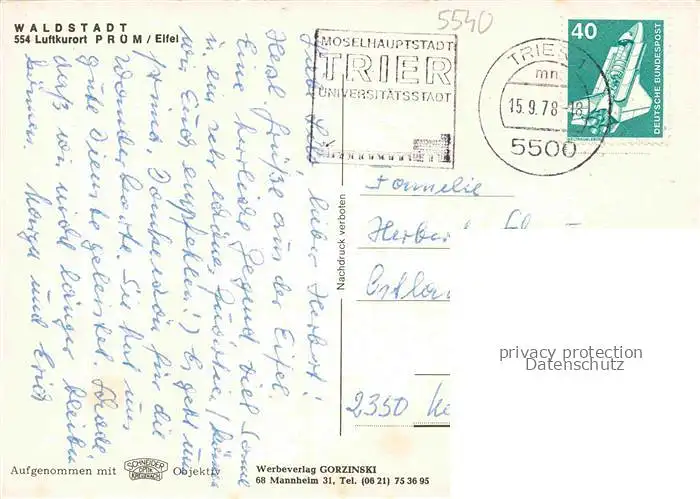 WALDSTADT
554 Luftkurort PRÜM / Eifel
5540
MOSELHAUPTSTADT
TRIER
UNIVERSITÄTSSTADT
TRIER 1
mn
15.9.78-18
5500
40
DEUTSCHE BUNDESPOST
lieber Herbert!
Herzl. Grüße aus der Eifel.
Eine herrliche Gegend viel Sonne
u. ein sehr schönes Quartier (können
wir Euch empfehlen!) Es geht uns
prima Dankeschön für die
Wanderkarte. Sie hat uns
gute Dienste geleistet. Schade
daß wir nicht länger bleiben
können. und Erich
Nachdruck verboten
Familie
Herber
2350
privacy protection
Datenschutz
Aufgenommen mit SCHNEIDER OPTIK KREUZNACH Objektiv
Werbeverlag GORZINSKI
68 Mannheim 31, Tel. (06 21) 75 36 95